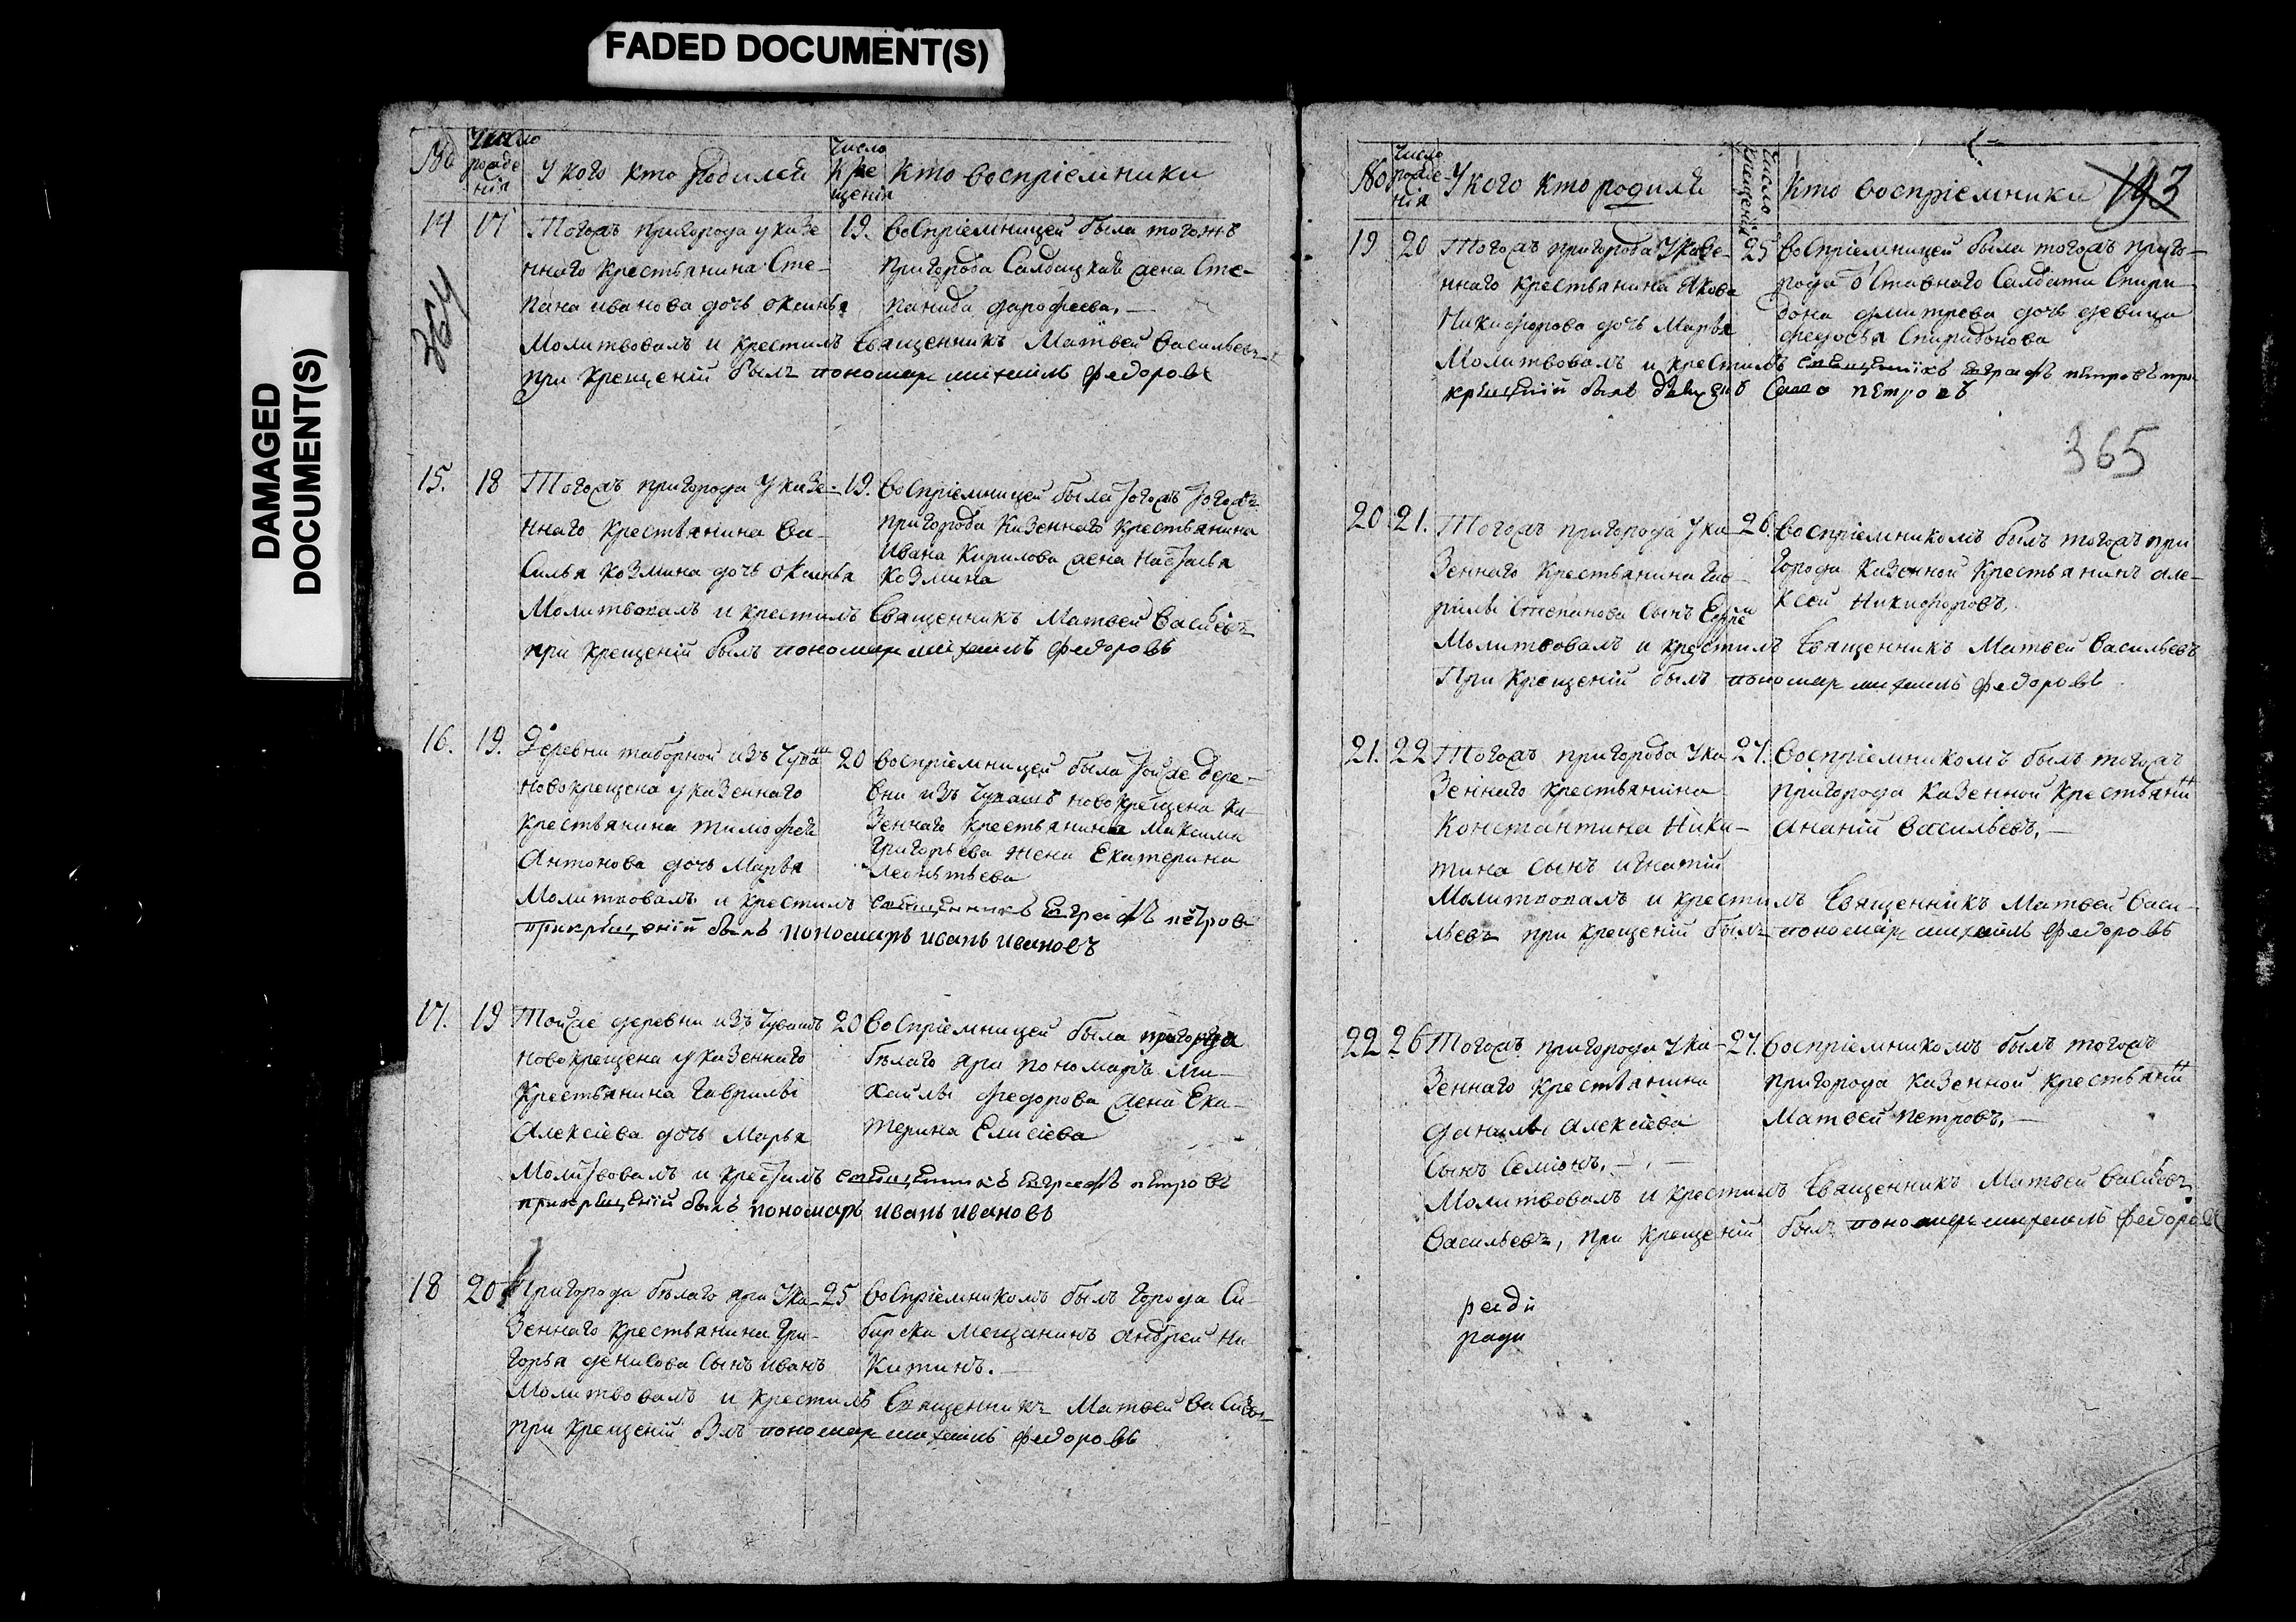 FADED DOCUMENT(S)
DAMAGED
DOCUMENT(S)
№
Число рожде нія
У кого кто родился
Число кре щенія
Кто воспріемники
364
14 17 Тогожъ пригорода у казе
ннаго крестьянина Сте-
пана иванова дочь оксинья
19. Воспріемницей была тогожъ
пригорода Салдацкая жена Сте-
панида дорофеева. —
Молитвовалъ и крестилъ Священникъ Матвей Васильевъ
при крещеній былъ пономар михаилъ федоровъ
15. 18 Тогожъ пригорода У казе-
ннаго крестьянина Ва-
силья козмина дочь оксинья
19. Воспріемницей была тогожъ тогожъ
пригорода казеннаго крестьянина
Ивана Кирилова жена Настасья
козмина
Молитвовалъ и крестилъ Священникъ Матвей Васильевъ
при крещеній былъ пономар михаилъ федоровъ
16. 19. Деревни таборной изъ Чувашъ
новокрещена у казеннаго
крестьянина тимофея
Антонова дочь Марья
20 Воспріемницей была тойже дере-
вни изъ Чувашъ новокрещена ка-
зеннаго крестьянина Максима
Григорьева жена Екатерина
Леонтьева
Молитвовалъ и крестилъ священникъ Евграфъ пётровъ
прикрещеніи былъ пономарь иванъ ивановъ
17. 19 Тойже деревни изъ Чувашъ
новокрещена у казеннаго
крестьянина Гаврилы
Алексіева дочь Марья
20 Воспріемницей была пригорода
бѣлаго яра пономаря Ми-
хайлы федорова жена Ека-
терина Елисіева
Молитвовалъ и крестилъ священникъ Евграфъ пЕтровъ
прикрещеній былъ пономарь иванъ ивановъ
18 20 Пригорода бѣлаго яра У ка-
зеннаго крестьянина Гри-
горья денисова Сынъ иванъ
25 Воспріемникомъ былъ города Си-
бирска мещанинъ андрей Ни-
китинъ. —
Молитвовалъ и крестилъ Священникъ Матвей Васильевъ
при крещеній былъ пономар михаилъ федоровъ
№
Число рожде нія
У кого кто родился
Число крещенія
Кто воспріемники
193
19 20 Тогожъ пригорода У казе-
ннаго крестьянина Якова
Никифорова дочь Марья
25 Воспріемницей была тогожъ приго-
рода отставнаго Салдата Спири
дона дмитрева дочь девица
федосья Спиридонова
Молитвовалъ и крестилъ священникъ Евграфъ пЕтровъ при
крещеніи былъ дьячокъ пЕтровъ
365
20 21. Тогожъ пригорода У ка-
зеннаго крестьянина Гав-
рилы Степанова Сынъ
26. Воспріемникомъ былъ тогожъ при
города казенной крестьянинъ але-
ксей Никифоровъ.
Молитвовалъ и крестилъ Священникъ Матвей Васильевъ
При крещеній былъ пономар михаилъ федоровъ
21. 22 Тогожъ пригорода У ка
зеннаго крестьянина
константина Ники-
тина сынъ игнатій
27. Воспріемникомъ былъ тогожъ
пригорода казенной крестьянинъ
ананій Васильевъ. —
Молитвовалъ и крестилъ Священникъ Матвей Васи-
льевъ при крещеній былъ пономар михаилъ федоровъ
22 26 Тогожъ пригорода У ка-
зеннаго крестьянина
данилы алексіева
Сынъ Семіонъ. —
27. Воспріемникомъ былъ тогожъ
пригорода казенной крестьянинъ
Матвей петровъ. —
Молитвовалъ и крестилъ Священникъ Матвей Васильевъ
Васильевъ, при крещеній былъ пономар михаилъ федоровъ
ради
ради